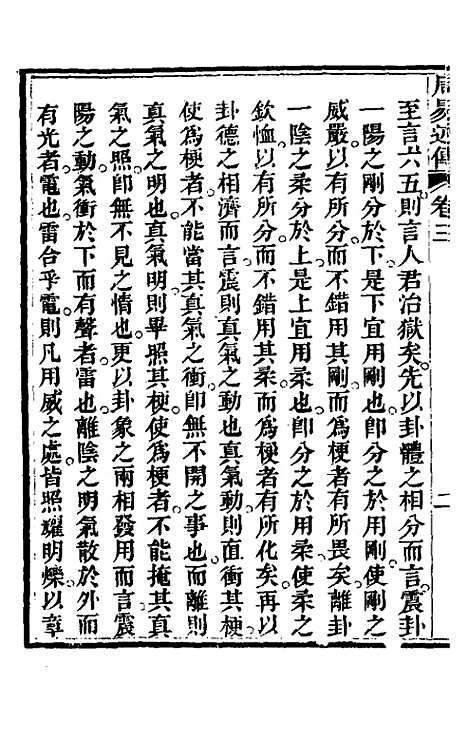 周易述傳 卷三 二
至言六五則言人君治獄矣先以卦體之相分而言震卦
一陽之剛分於下是下宜用剛也卽分之於用剛使剛之
威嚴以有所分而不錯用其剛而爲梗者有所畏矣離卦
一陰之柔分於上是上宜用柔也卽分之於用柔使柔之
欽恤以有所分而不錯用其柔而爲梗者有所化矣再以
卦德之相濟而言震則真氣之動也真氣動則直衝其梗
使爲梗者不能當其真氣之衝卽無不開之事也而離則
真氣之明也真氣明則畢照其梗使爲梗者不能掩其真
氣之照卽無不見之情也更以卦象之兩相發用而言震
陽之動氣衝於下而有聲者雷也離陰之明氣散於外而
有光者電也雷合乎電則凡用威之處皆照耀明爍以章